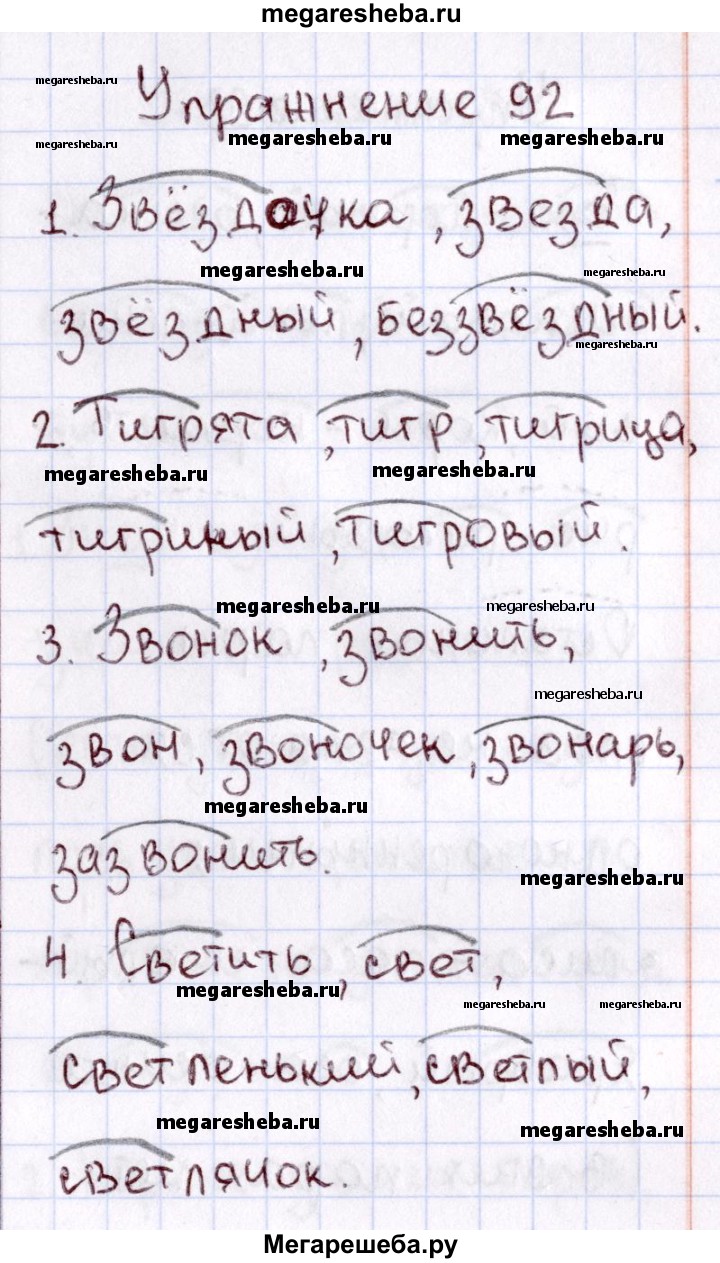 megaresheba.ru
megaresheba.ru
Упражнение 92
megaresheba.ru megaresheba.ru
megaresheba.ru
1. Звёздочка, звезда,
megaresheba.ru megaresheba.ru
звёздный, беззвёздный.
megaresheba.ru
2. Тигрята, тигр, тигрица,
megaresheba.ru megaresheba.ru
тигриный, тигровый.
megaresheba.ru megaresheba.ru
3. Звонок, звонить,
megaresheba.ru
звон, звоночек, звонарь,
megaresheba.ru
зазвонить.
megaresheba.ru
4. Светить, свет,
megaresheba.ru megaresheba.ru megaresheba.ru
светленький, светлый,
megaresheba.ru megaresheba.ru
светлячок.
Мегарешеба.ру